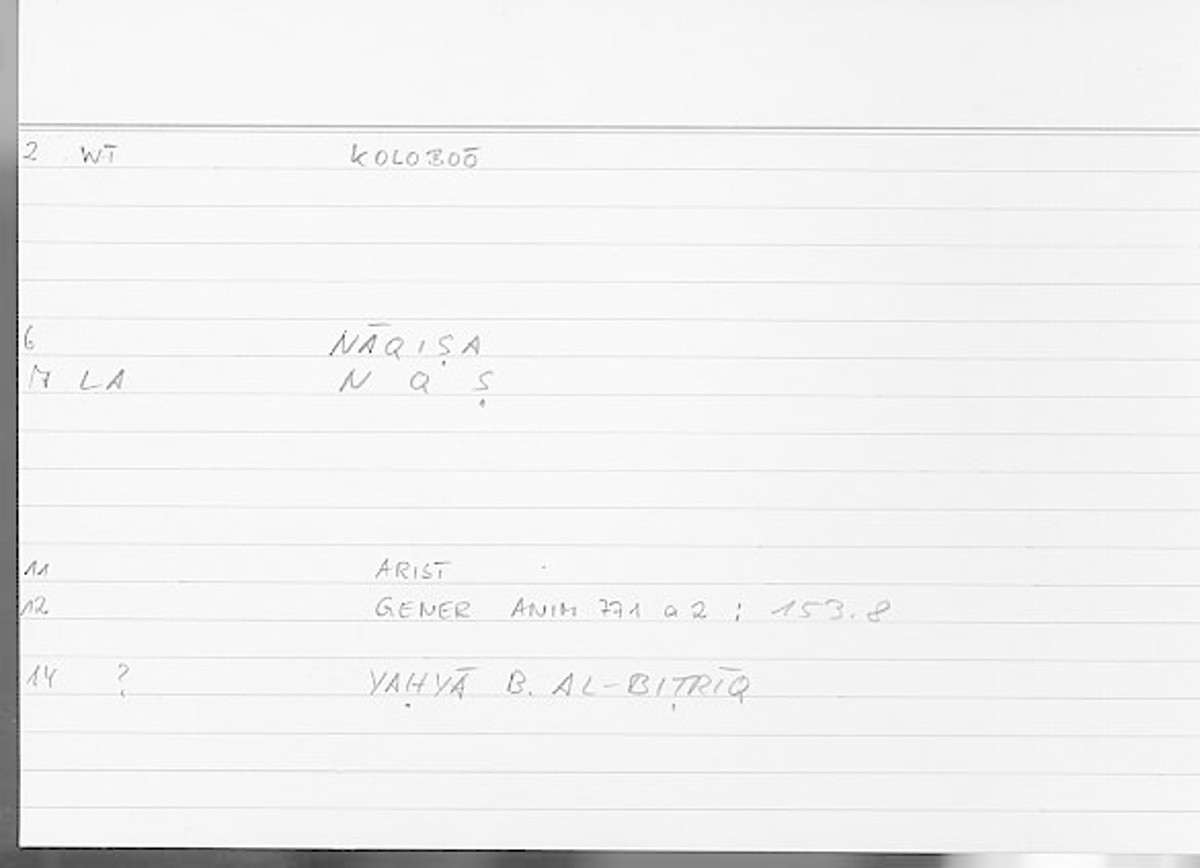 2 WT̄ KOLOBOŌ
6 NĀQIṢA
17 LA N Q Ṣ
11 ARIST
12 GENER ANIM 771 a 2 ; 153.8
14 ? YAḤYĀ B. AL-BIṬRĪQ